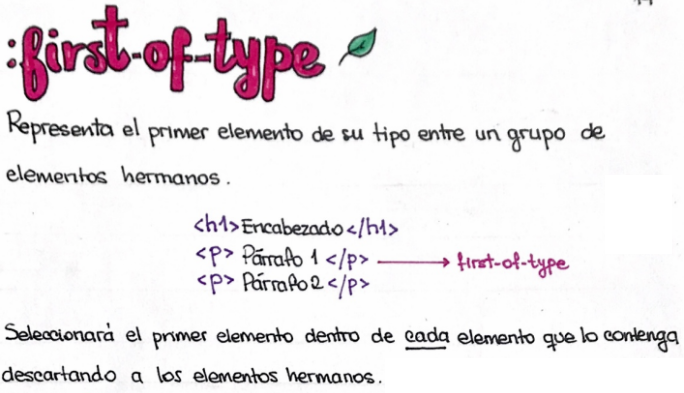 :first-of-type
Representa el primer elemento de su tipo entre un grupo de
elementos hermanos.
<h1>Encabezado</h1>
<p> Párrafo 1 </p> → first-of-type
<p> Párrafo 2 </p>
Seleccionará el primer elemento dentro de cada elemento que lo contenga
descartando a los elementos hermanos.